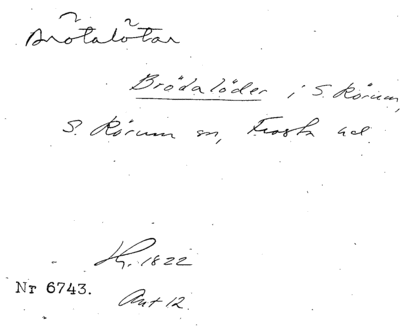 Brötalötar
Brödalöder i S. Rörum,
S. Rörum sn, Frosta hd.
Lh. 1822
Nr 6743.
Avt 12.